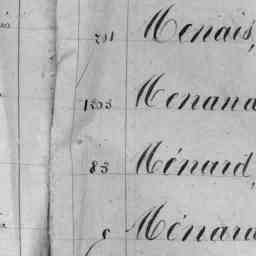 731 Menais,
1535 Menand
83 Ménard,
6 Ménard